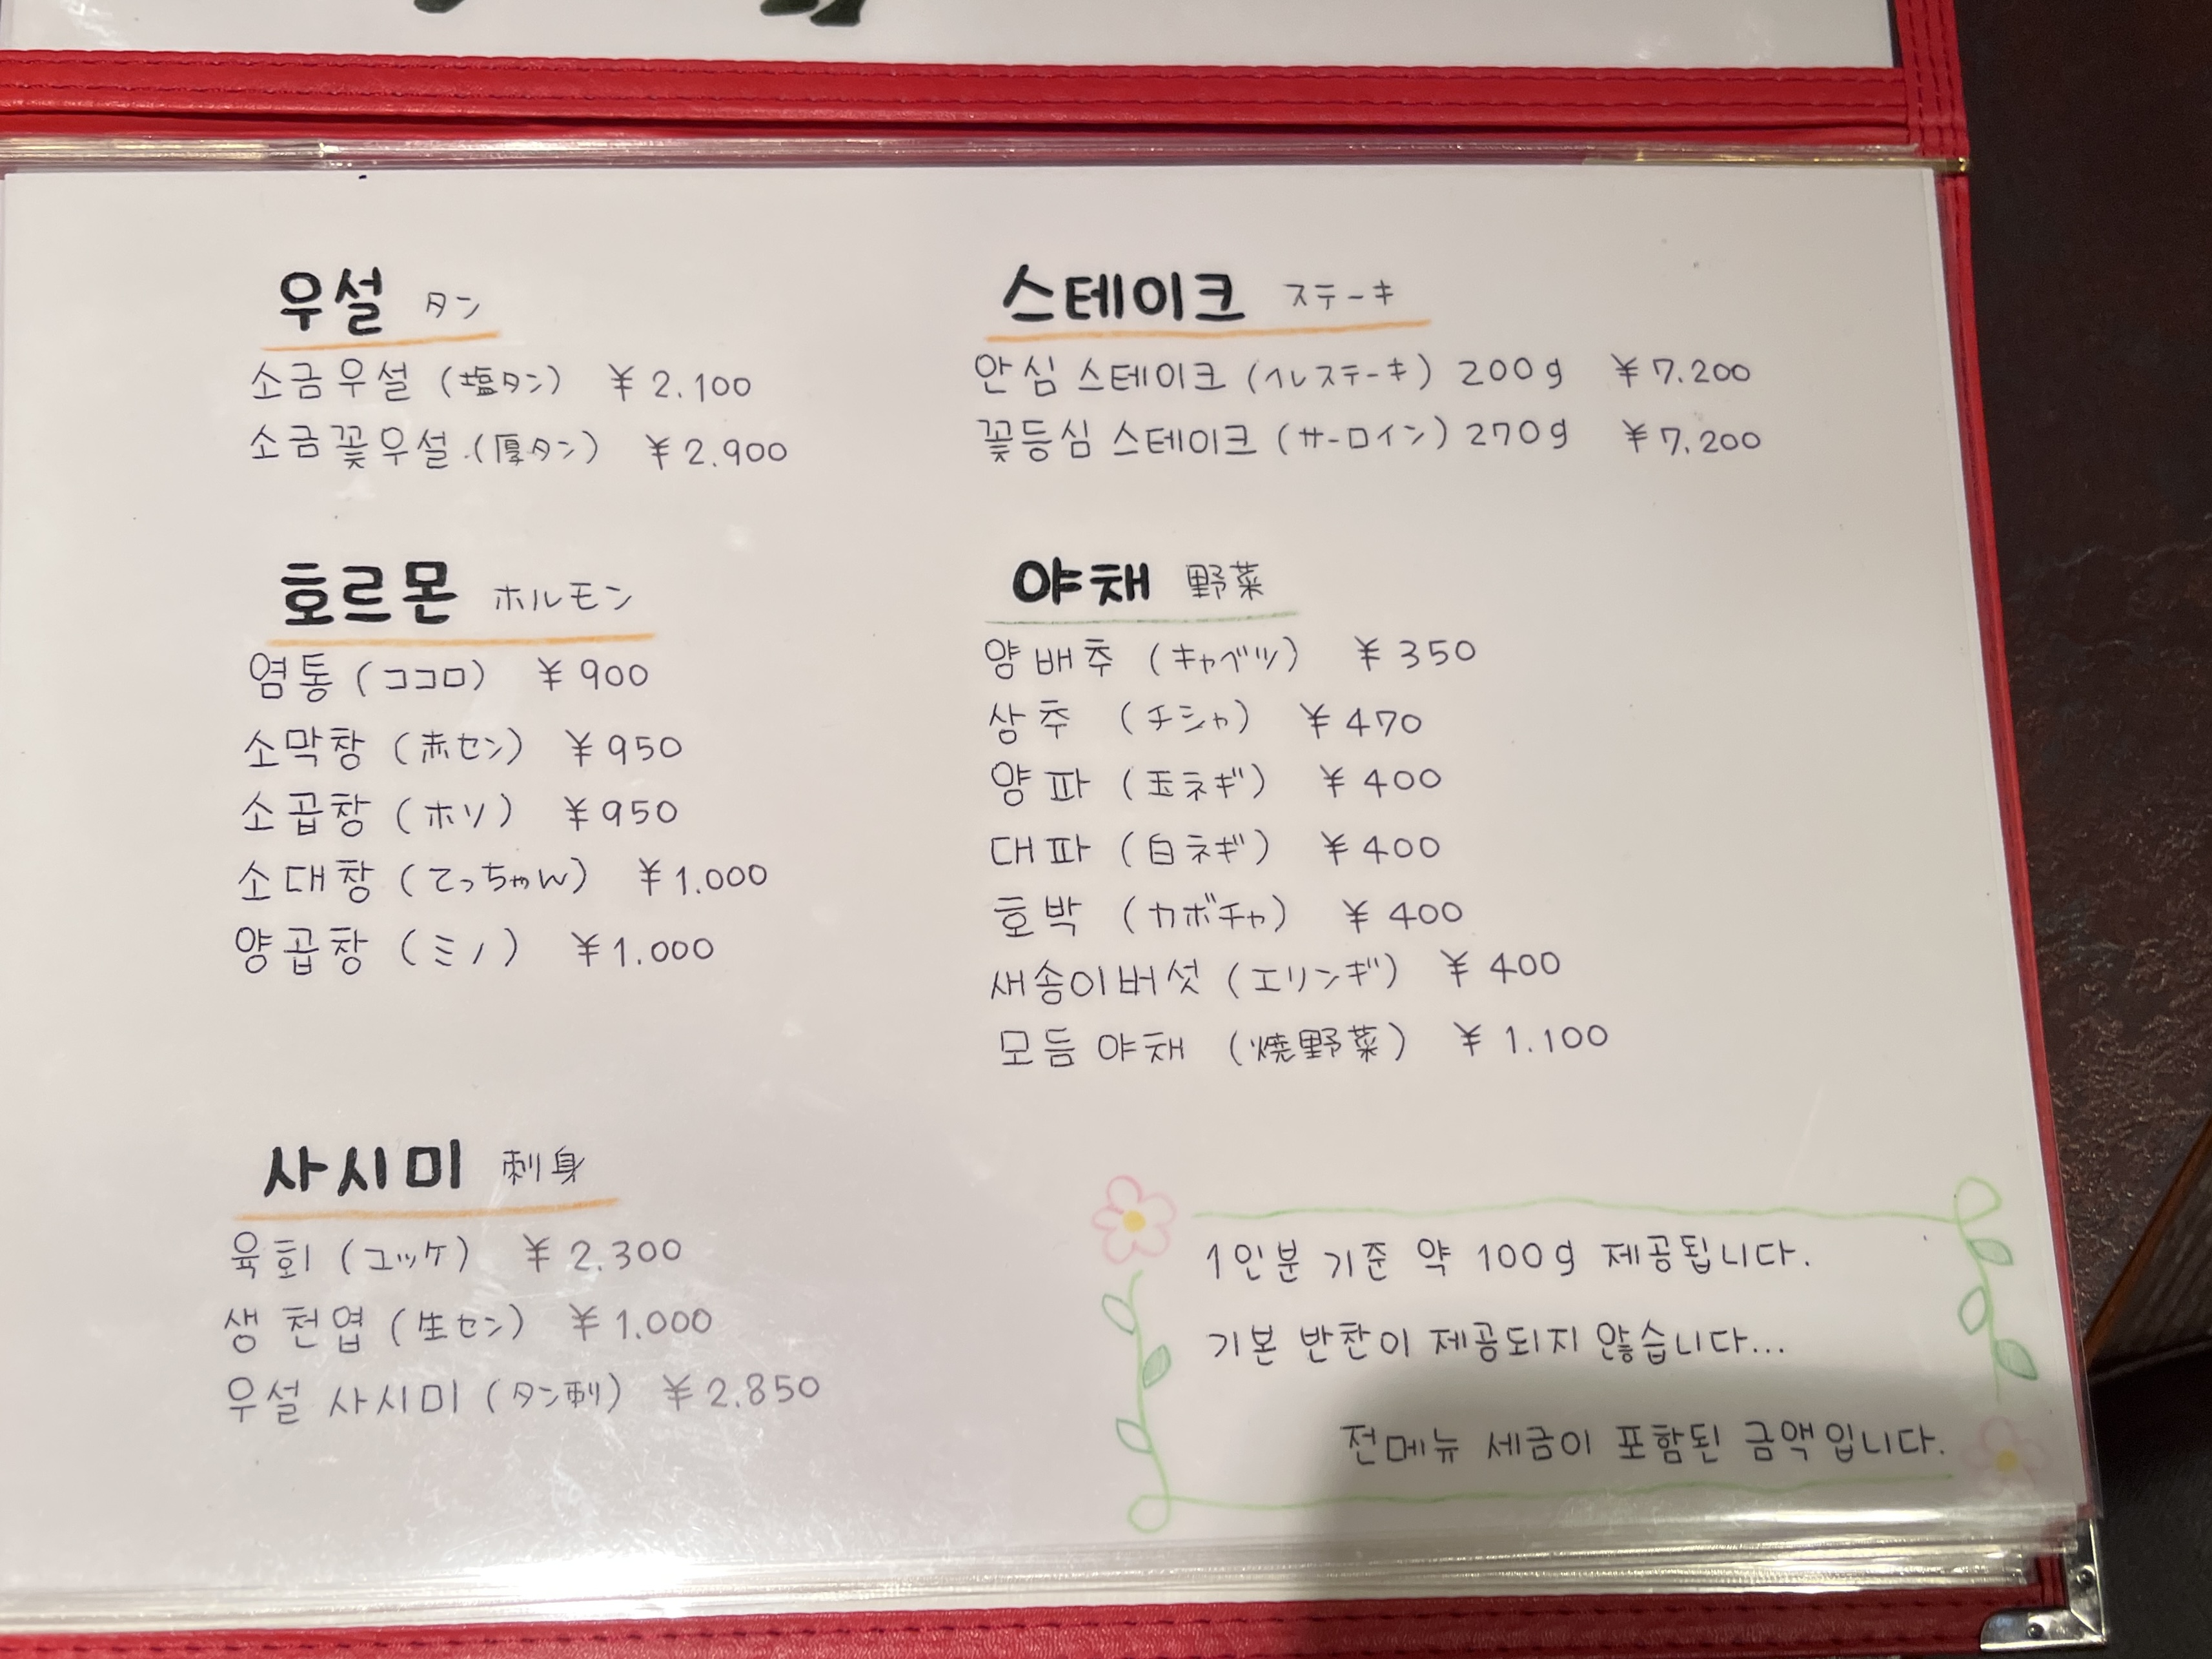 우설 タン
소금우설 (塩タン) ¥2.100
소금꽃우설 (厚タン) ¥2.900
호르몬 ホルモン
염통 (ココロ) ¥900
소막창 (赤セン) ¥950
소곱창 (ホソ) ¥950
소대창 (てっちゃん) ¥1.000
양곱창 (ミノ) ¥1.000
사시미 刺身
육회 (ユッケ) ¥2.300
생천엽 (生セン) ¥1.000
우설 사시미 (タン刺) ¥2.850
스테이크 ステーキ
안심 스테이크 (ヘレステーキ) 200g ¥7.200
꽃등심 스테이크 (サーロイン) 270g ¥7.200
야채 野菜
양배추 (キャベツ) ¥350
상추 (チシャ) ¥470
양파 (玉ネギ) ¥400
대파 (白ネギ) ¥400
호박 (カボチャ) ¥400
새송이버섯 (エリンギ) ¥400
모듬야채 (焼野菜) ¥1.100
1인분 기준 약 100g 제공됩니다.
기본 반찬이 제공되지 않습니다...
전메뉴 세금이 포함된 금액입니다.